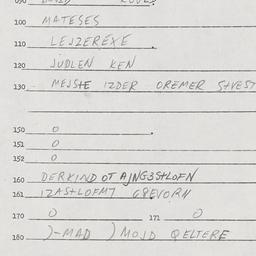 100 MATESES
110 LEJZEREXE
120 JUDLEN KEN
130 MEJSTE IZDER OREMER
150 0
151 0
152 0
160 DERKIND OT AJNG3STLOFN
161 IZASTLOFMT
170 0 171 0
180 )-MAD ) MOJD QELTERE